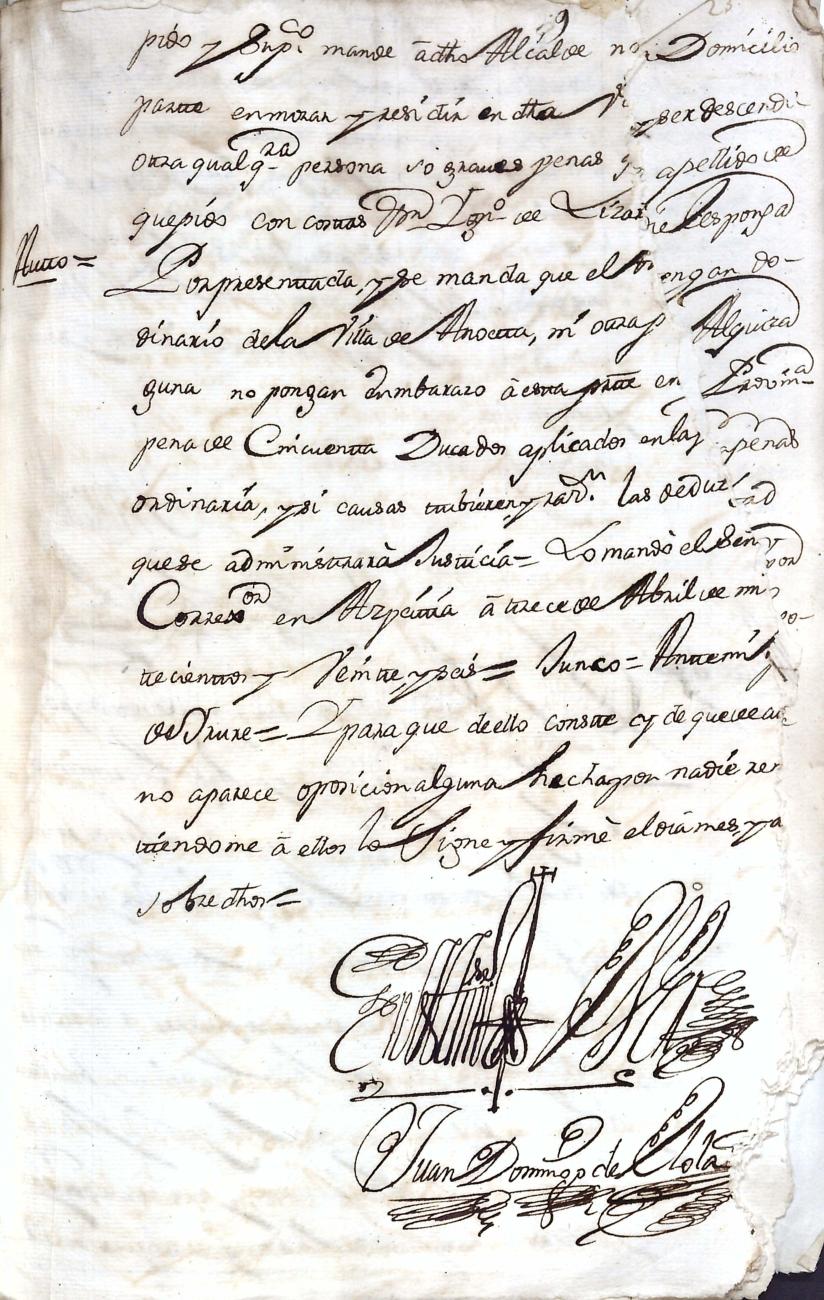 pido y Supco mande a dho Alcalde no Domicilio
parte en morar y residir en dha V y ser descendi
otra qualqra persona so graves penas y apellido de
que pido con costas Dn de Lizar Responsa
Autto = Por presentada, y se manda que el engan do-
dinario de la Villa de Anoetta, ni otra p Alquiza
guna no pongan Embarazo a esta partte en Provina
pena de Cincuentta Ducados aplicados en la penas
ordinaria, y si causas tubieren, y razn las deduz
que se administrará Justicia = Lo mandò el Señor
Corregor en Azpeitia à trece de Abril de mi
tecienttos y Veintte, y seis = Junco = Antte mi
de Irure = Y para que de ello constte y de que
no aparece oposicion alguna hecha por nadie re
ttiendome à ellos lo Signe y firmè el dia mes, y a
sobre dhos =
En testtimo de Verd
Juan Domingo de Olola